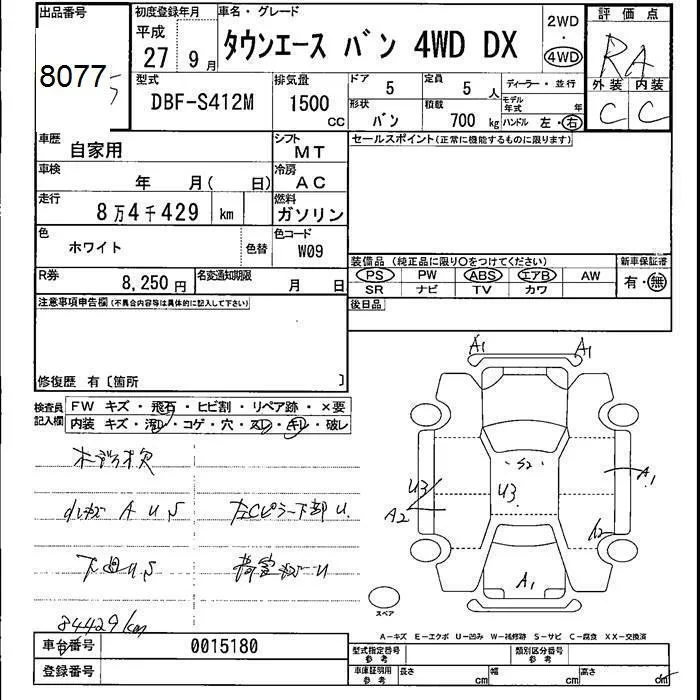 出品番号
8077
初度登録年月
平成
27 9月
車名・グレード
タウンエース バン 4WD DX
2WD
・
4WD
評価点
RA
外装 内装
C C
型式
DBF-S412M
排気量
1500 CC
ドア
5
定員
5 人
ディーラー・並行
形状
バン
積載
700 kg
モデル年式 年
ハンドル 左・右
車歴
自家用
シフト
MT
セールスポイント(正常に機能するものに限ります)
車検
年 月( 日)
冷房
AC
走行
8万4千429 km
燃料
ガソリン
色
ホワイト
色替
色コード
W09
装備品(純正品に限り○をつけてください)
新車保証書
PS PW ABS エアB AW
SR ナビ TV カワ
有・無
R券
8,250 円
名変通知期限
月 日
後日品
注意事項申告欄(不具合内容等は具体的に記入して下さい)
修復歴 有〔箇所 〕
検査員記入欄
FW キズ・飛石・ヒビ割・リペア跡・×要
内装 キズ・汚レ・コゲ・穴・スレ・キレ・破レ
A1 A1
S2
U3 U3
A2
A1
A1
スペア
A U S
下回 U S
左Cピラー下部 U
84429km
A-キズ E-エクボ U-凹み W-補修跡 S-サビ C-腐食 XX-交換済
車台番号
0015180
登録番号
型式指定番号
参考
類別区分番号
参考
車庫証明用
参考
長さ cm
幅 cm
高さ cm